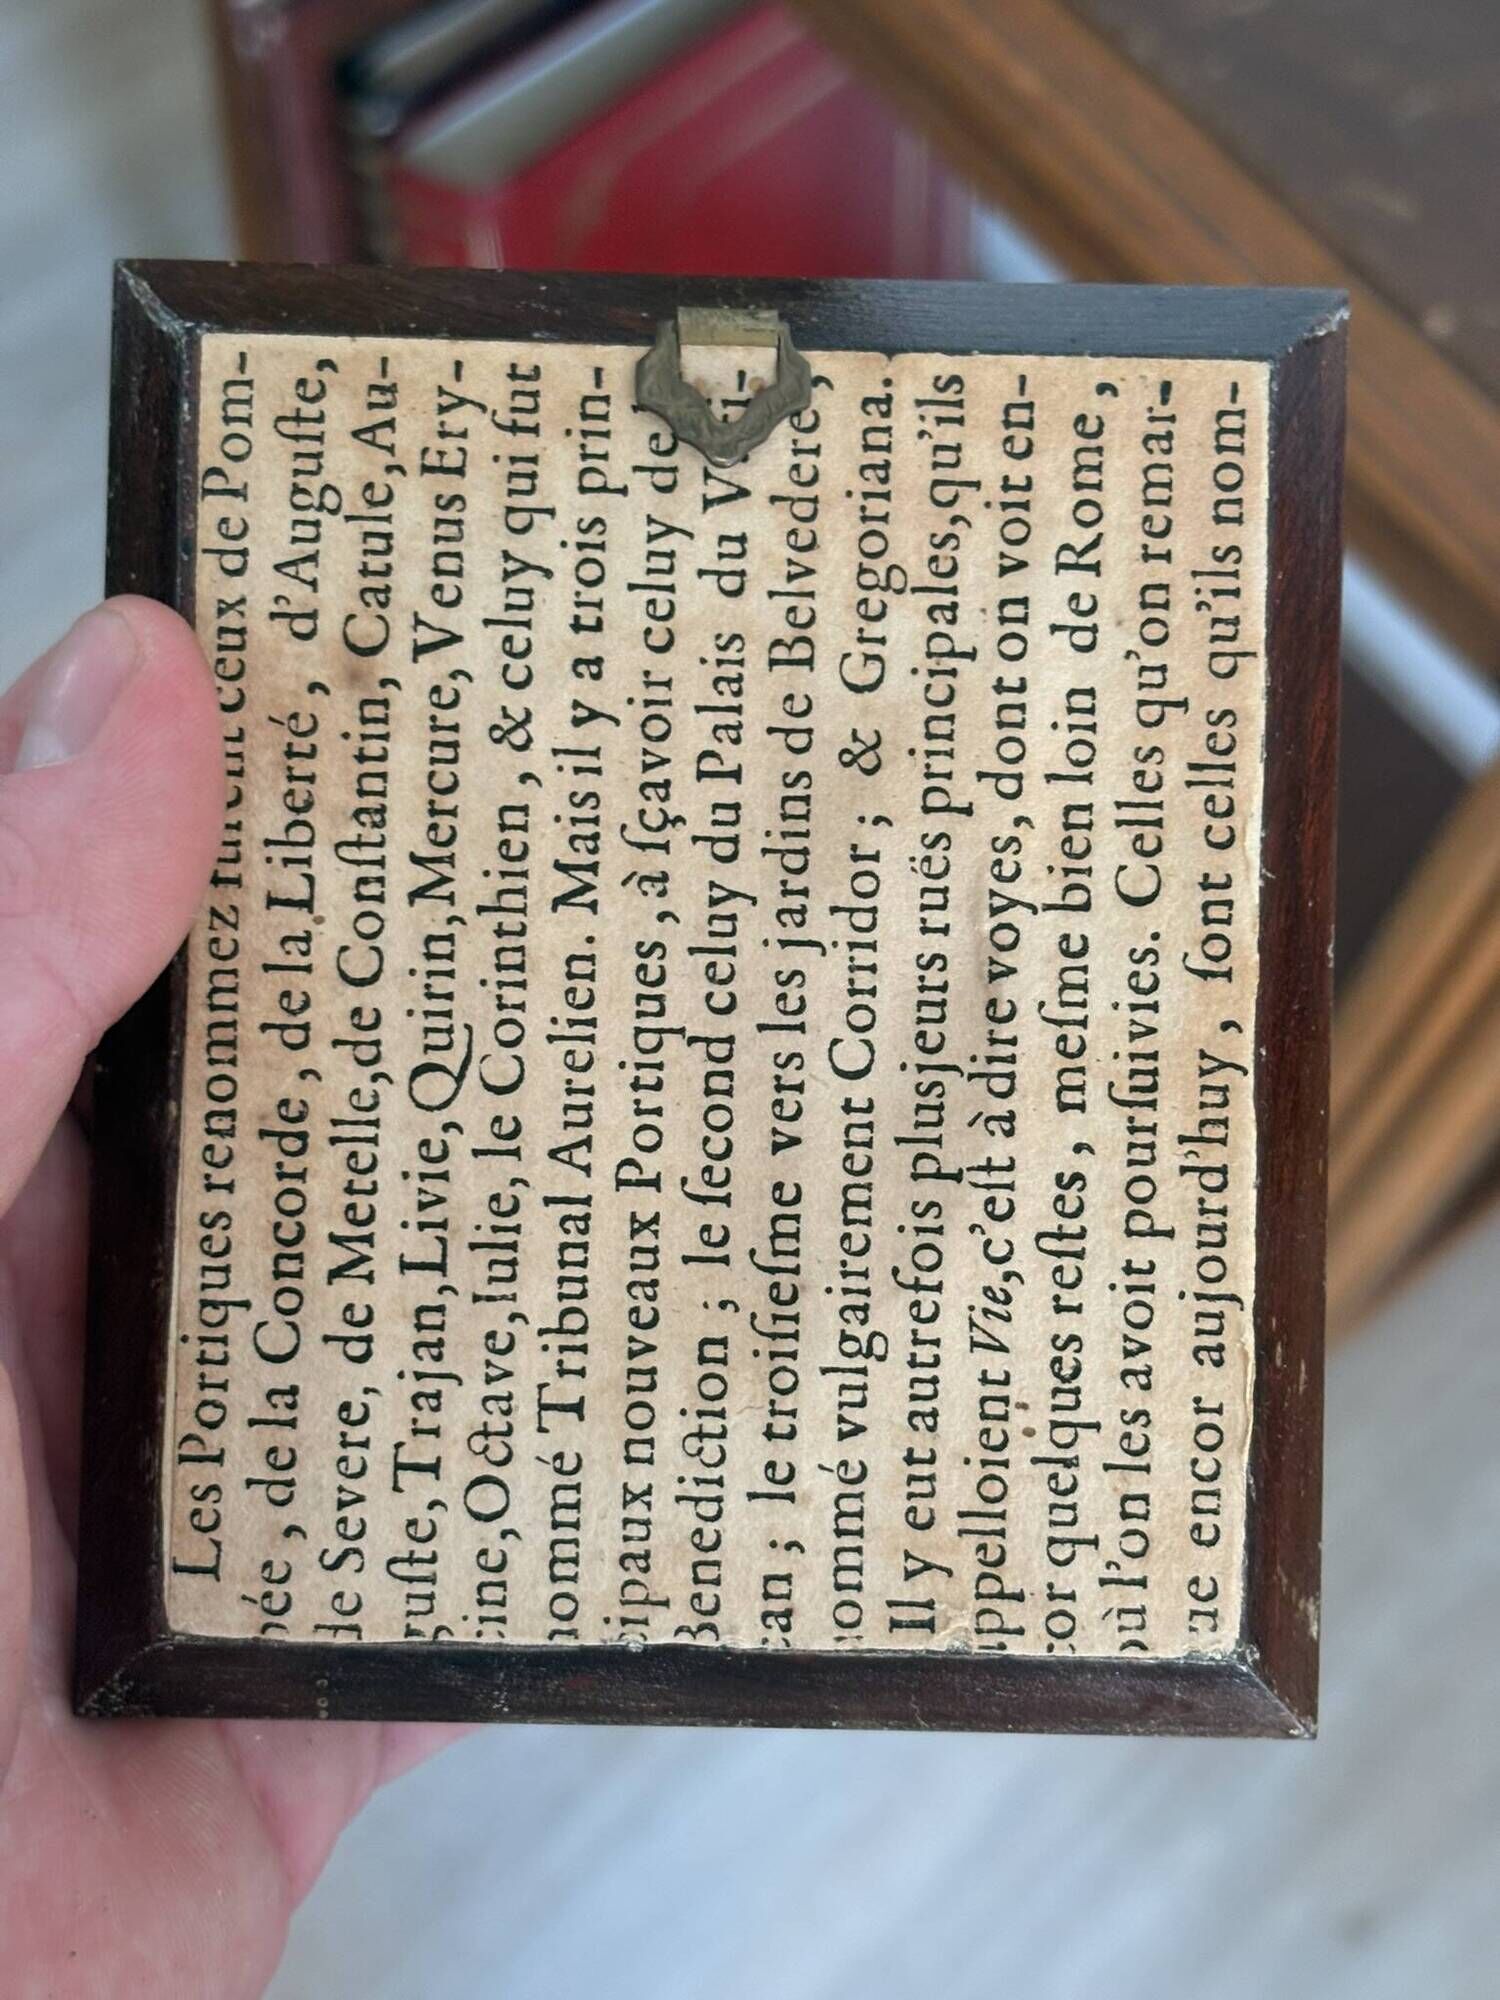 Les Portiques renommez furent ceux de Pom-
pée, de la Concorde, de la Liberté, d'Auguſte,
de Severe, de Metelle, de Conſtantin, Catule, Au-
guſte, Trajan, Livie, Quirin, Mercure, Venus Ery-
cine, Octave, Iulie, le Corinthien, & celuy qui fut
nommé Tribunal Aurelien. Mais il y a trois prin-
cipaux nouveaux Portiques, à ſçavoir celuy de
Benediction; le ſecond celuy du Palais du Vati-
can; le troiſieſme vers les jardins de Belvedere,
nommé vulgairement Corridor; & Gregoriana.
Il y eut autrefois plusjeurs ruës principales, qu'ils
appelloient Vie, c'eſt à dire voyes, dont on voit en-
cor quelques reſtes, meſme bien loin de Rome,
où l'on les avoit pourſuivies. Celles qu'on remar-
que encor aujourd'huy, ſont celles qu'ils nom-